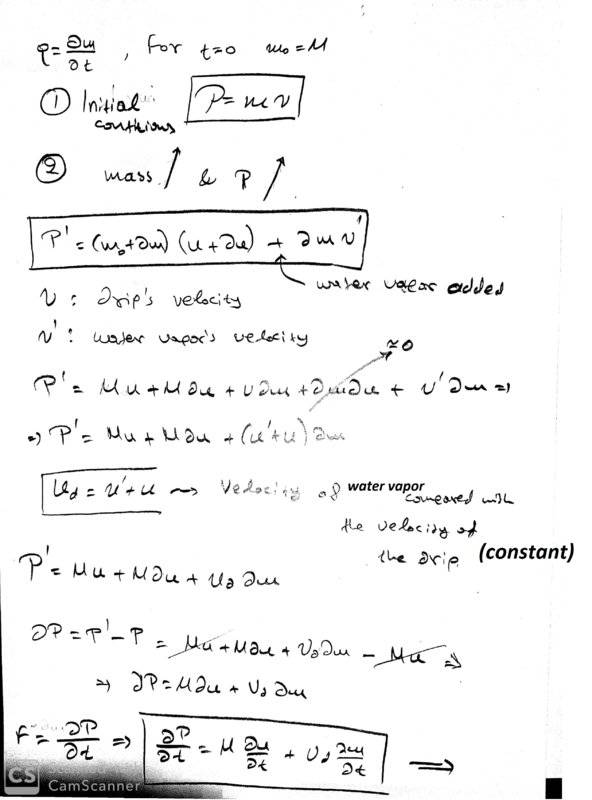 q = ∂m/∂t , For t=0 m₀ = M
① Initial conditions P = m v
② mass ↗ & P ↗
P' = (m₀+∂m) (u+∂u) + ∂m v'
water vapor added
v : drip's velocity
v' : water vapor's velocity
≈0
P' = Mu + M∂u + u∂m + ∂m∂u + u'∂m ⇒
⇒ P' = Mu + M∂u + (u'+u) ∂m
u_d = u'+u ⇝ Velocity of water vapor
compared with
the velocity of
the drip (constant)
P' = Mu + M∂u + u_∂ ∂m
∂P = P' - P = Mu + M∂u + U_∂ ∂m - Mu ⇒
⇒ ∂P = M∂u + U_d ∂m
F = ∂P/∂t ⇒ ∂P/∂t = M ∂u/∂t + U_d ∂m/∂t ⟹
CS CamScanner